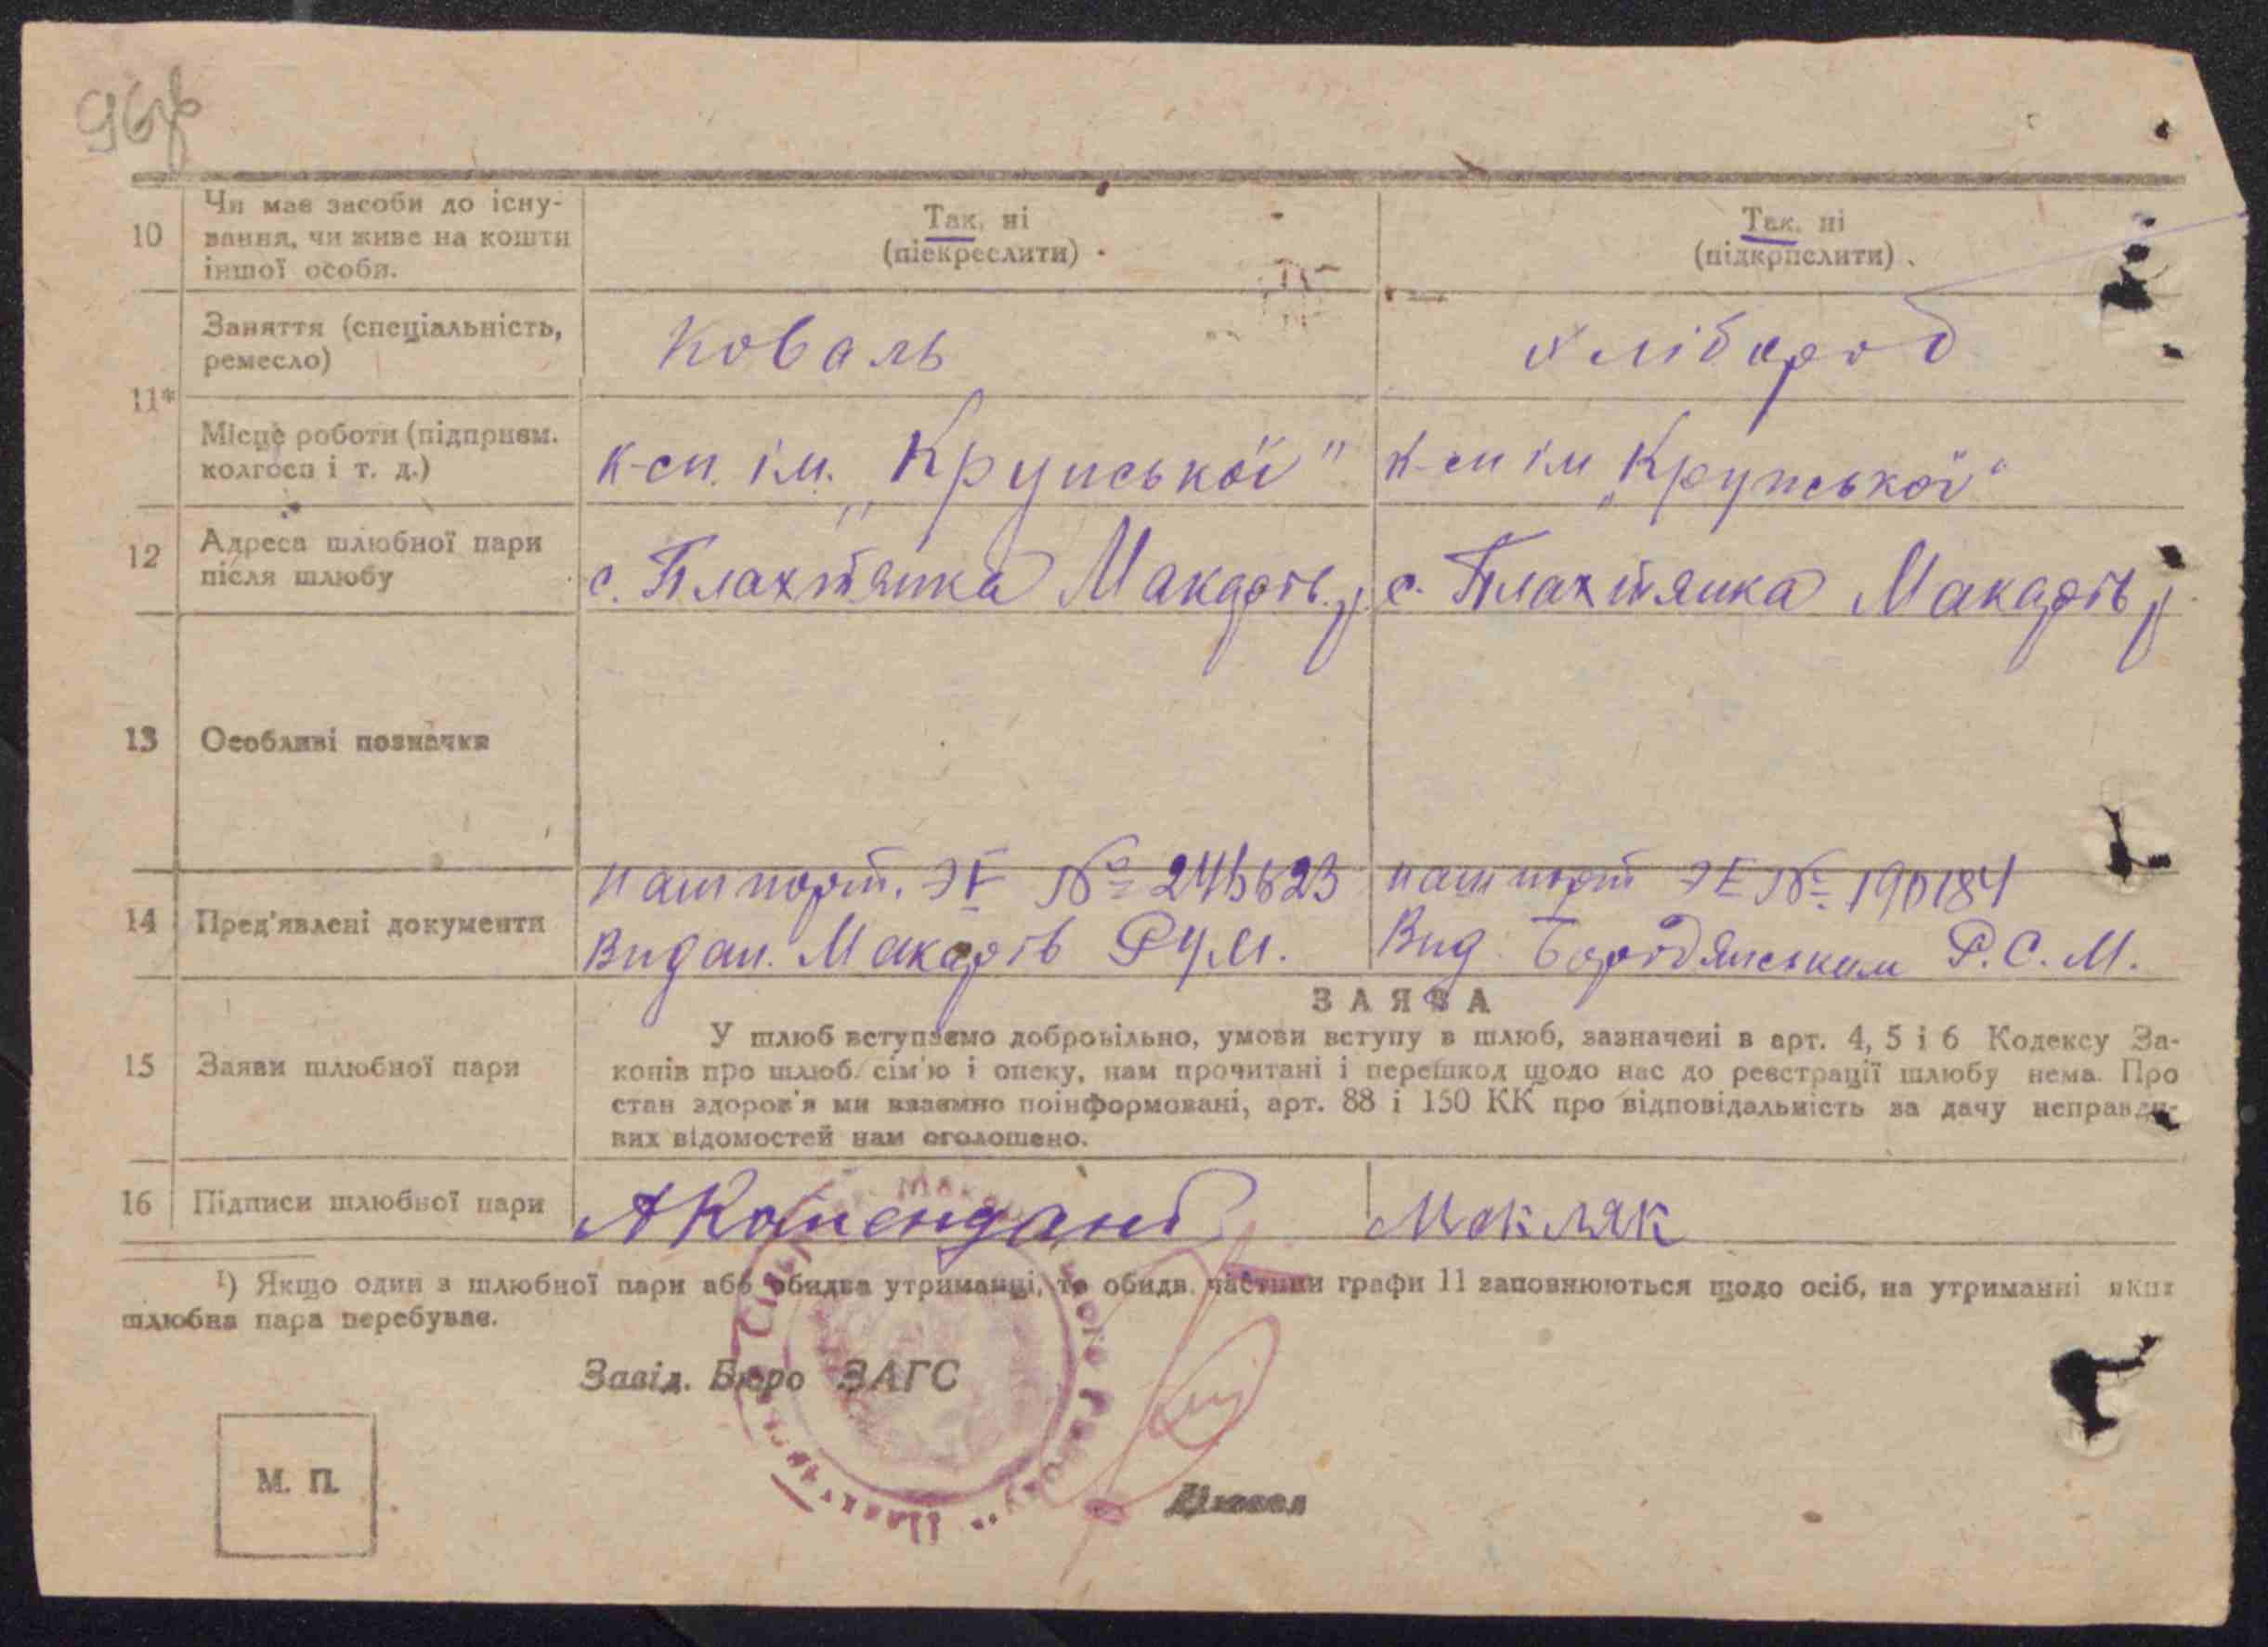 10
Чи має засоби до існу-
вання, чи живе на кошти
іншої особи.
Так, ні
(піекреслити)
Так, ні
(підкрпслити)
11*
Заняття (спеціальність,
ремесло)
Коваль
хлібороб
Місце роботи (підприєм.
колгосп і т. д.)
к-сп. ім. „Крупської"
к-сп ім „Крупської"
12
Адреса шлюбної пари
після шлюбу
с. Плахтянка Макарів. р.
с. Плахтянка Макарів р.
13
Особливі позначки
14
Пред'явлені документи
пашпорт. ЭГ №
Видан. Макарів РУМ.
пашпорт № 190184
Вид. Бородянським Р.С.М.
15
Заяви шлюбної пари
ЗАЯВА
У шлюб вступаємо добровільно, умови вступу в шлюб, зазначені в арт. 4, 5 і 6 Кодексу За-
конів про шлюб, сім'ю і опеку, нам прочитані і перешкод щодо нас до реєстрації шлюбу нема. Про
стан здоров'я ми взаємно поінформовані, арт. 88 і 150 КК про відповідальність за дачу неправди-
вих відомостей нам оголошено.
16
Підписи шлюбної пари
АКомендант
Мокляк
1) Якщо один з шлюбної пари або обидва утриманці, то обидв. частини графи 11 заповнюються щодо осіб, на утриманні яких
шлюбна пара перебуває.
Завід. Бюро ЗАГС
М. П.